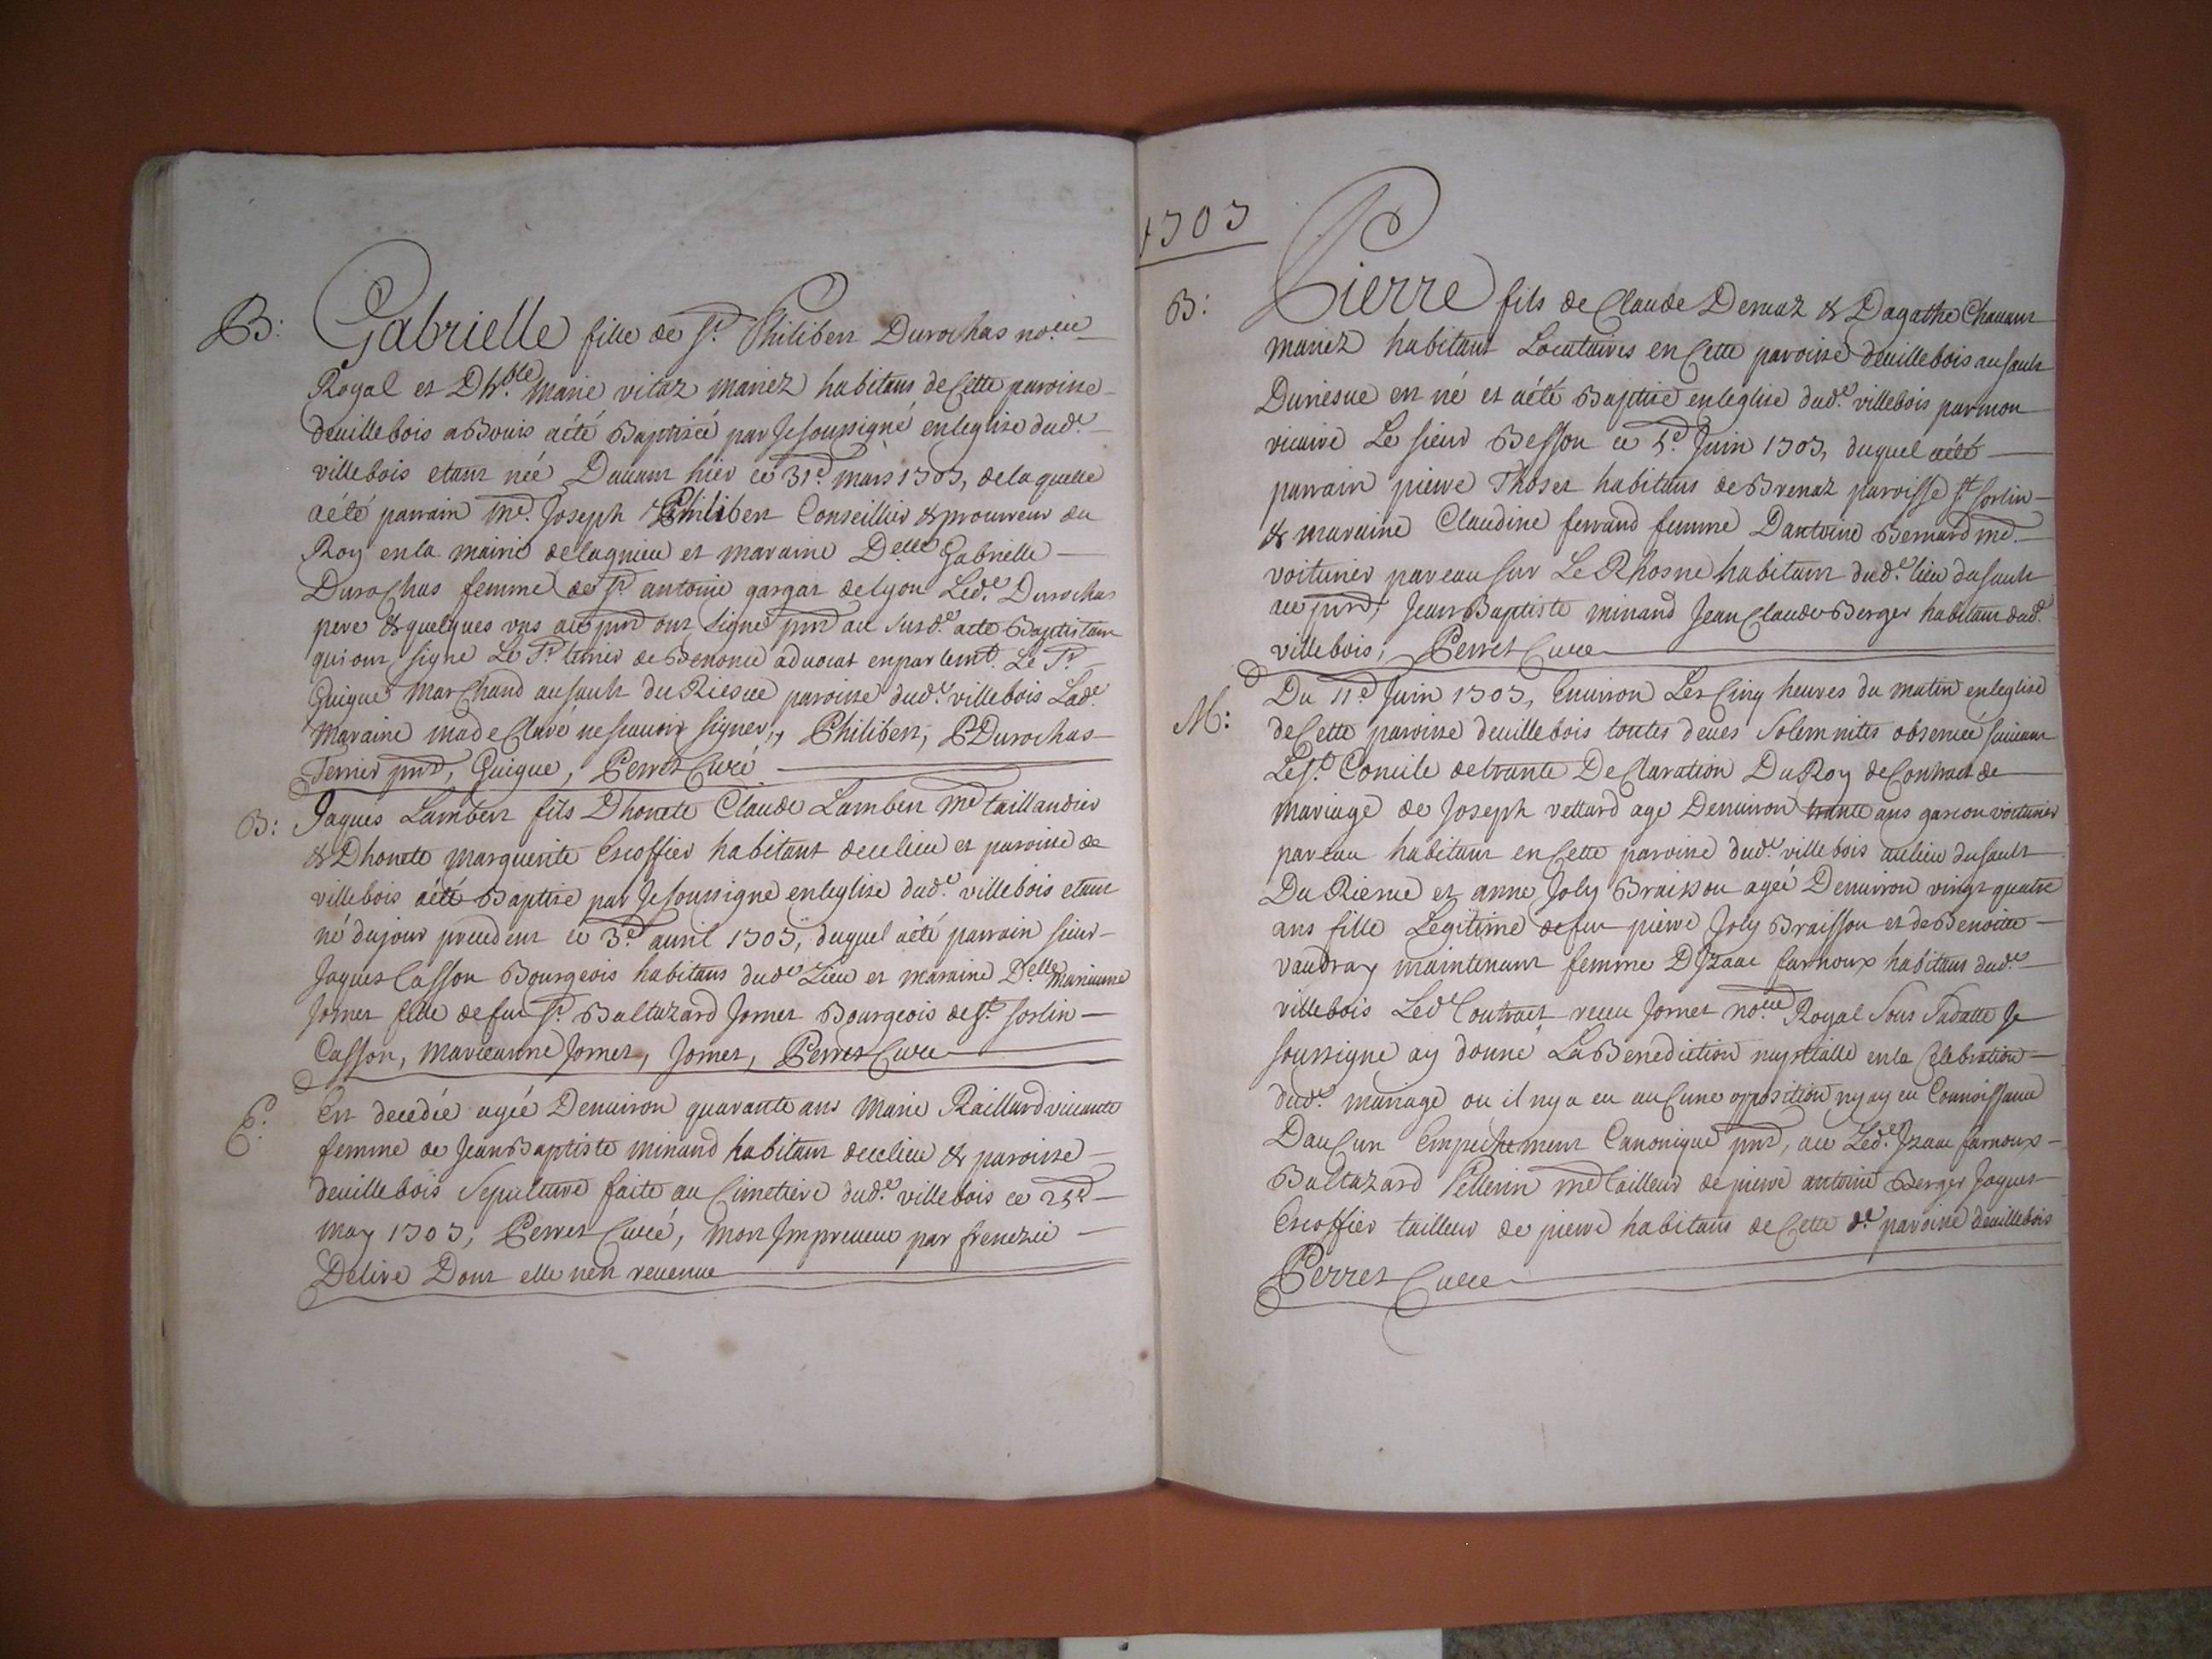 B: Gabrielle fille de Sr. Philibert Durochas no.re
Royal et Dh.ble Marie vitaz mariez habitans de Cette paroisse
deuillebois aBouis aété Baptisée par Jesoussigné enleglise dud.e
villebois etant née Dauant hier ce 31.e mars 1703, de laquelle
aété parrain Me. Joseph Philibert Conseillier & procureur du
Roy enla mairie delagnieu et maraine D.elle Gabrielle
Durochas femme de Sr antoine gargat de lyon Led.e Durochas
pere & quelques vns au pnt ont signé pnt au susd.e acte Baptistaire
qui ont signé Le Sr. terrier de aduocat enparlemt. Le Sr.
Guigue Marchand ausault du Riesue paroisse dud.e villebois Lad.e
Maraine madeClaré nescauoir signer, Philibert, PDurochas
Terrier pnt, Guigue, Perret Curé
B: Jaques Lambert fils Dhonete Claude Lambert me taillandier
& Dhonete Marguerite Escoffier habitant decelieu et paroisse de
villebois aété Baptise par Jesoussigné enleglise dud.e villebois etant
né dujour precedent ce 3.e auril 1703, duquel aété parrain sieur
Jaques Casson Bourgeois habitans dud.e Lieu et maraine D.elle Marianne
Jomer fille defut Sr. Baltazard Jomer Bourgeois deSt. sorlin
Casson, Marieanne Jomer, Jomer, Perret Curé
E: Est decedée agée Denuiron quarante ans Marie Raillard viuante
femme de JeanBaptiste minand habitant decelieu & paroisse
deuillebois Sepulture faite au Cimetiere dud.e villebois ce 25.e
may 1703, Perret Curé, Mort Impreueue par frenezie
Delire Dont elle nest reuenue
1703
B: Pierre fils de Claude Deruaz & Dagathe Chauant
mariez habitant Locataires en Cette paroisse deuillebois au sault
Duriesue est né et aété Baptise enleglise dud.e villebois parmon
vicaire Le sieur Besson ce 5.e Juin 1703, duquel aété
parrain pierre Thoset habitans de Brenaz paroisse St sorlin
& maraine Claudine ferrand femme Dantoine Bernard md.
voiturier pareau sur Le Rhosne habitant dud.e lieu dusault
au pnt, Jean Baptiste minand Jean Claude Berger habitant dud.e
villebois, Perret Curé
M: Du 11.e Juin 1703, Enuiron Les Cinq heures du matin enleglise
deCette paroisse deuillebois toutes deues Solemnites obseruée suiuant
LeSt. Concile detrante DeClaration DuRoy deContract de
mariage de Joseph vettard age Denuiron trante ans garcon voiturier
pareau habitant en Cette paroisse dud.e villebois aulieu dusault
Du Riesue et anne Joly Braisson agée Denuiron vingt quatre
ans fille Legitime defut pierre Joly Braisson et deBenoite
vaudray maintenant femme DJzaac farnoux habitans dud.e
villebois Led.e Contract receu Jomer no.re Royal Sous Sadatte Je
soussigné ay donné La Benediction nuptialle enla Celebration
dud.e mariage ou il nya eu auCune opposition nyay eu Connoissance
DauCun Empechement Canonique pnt, au Led.e Jzaac farnoux
Baltazard Pellerin me tailleur de pierre antoine Berger Jaques
Escoffier tailleur de pierre habitans de Cette d.e paroisse deuillebois
Perret Curé